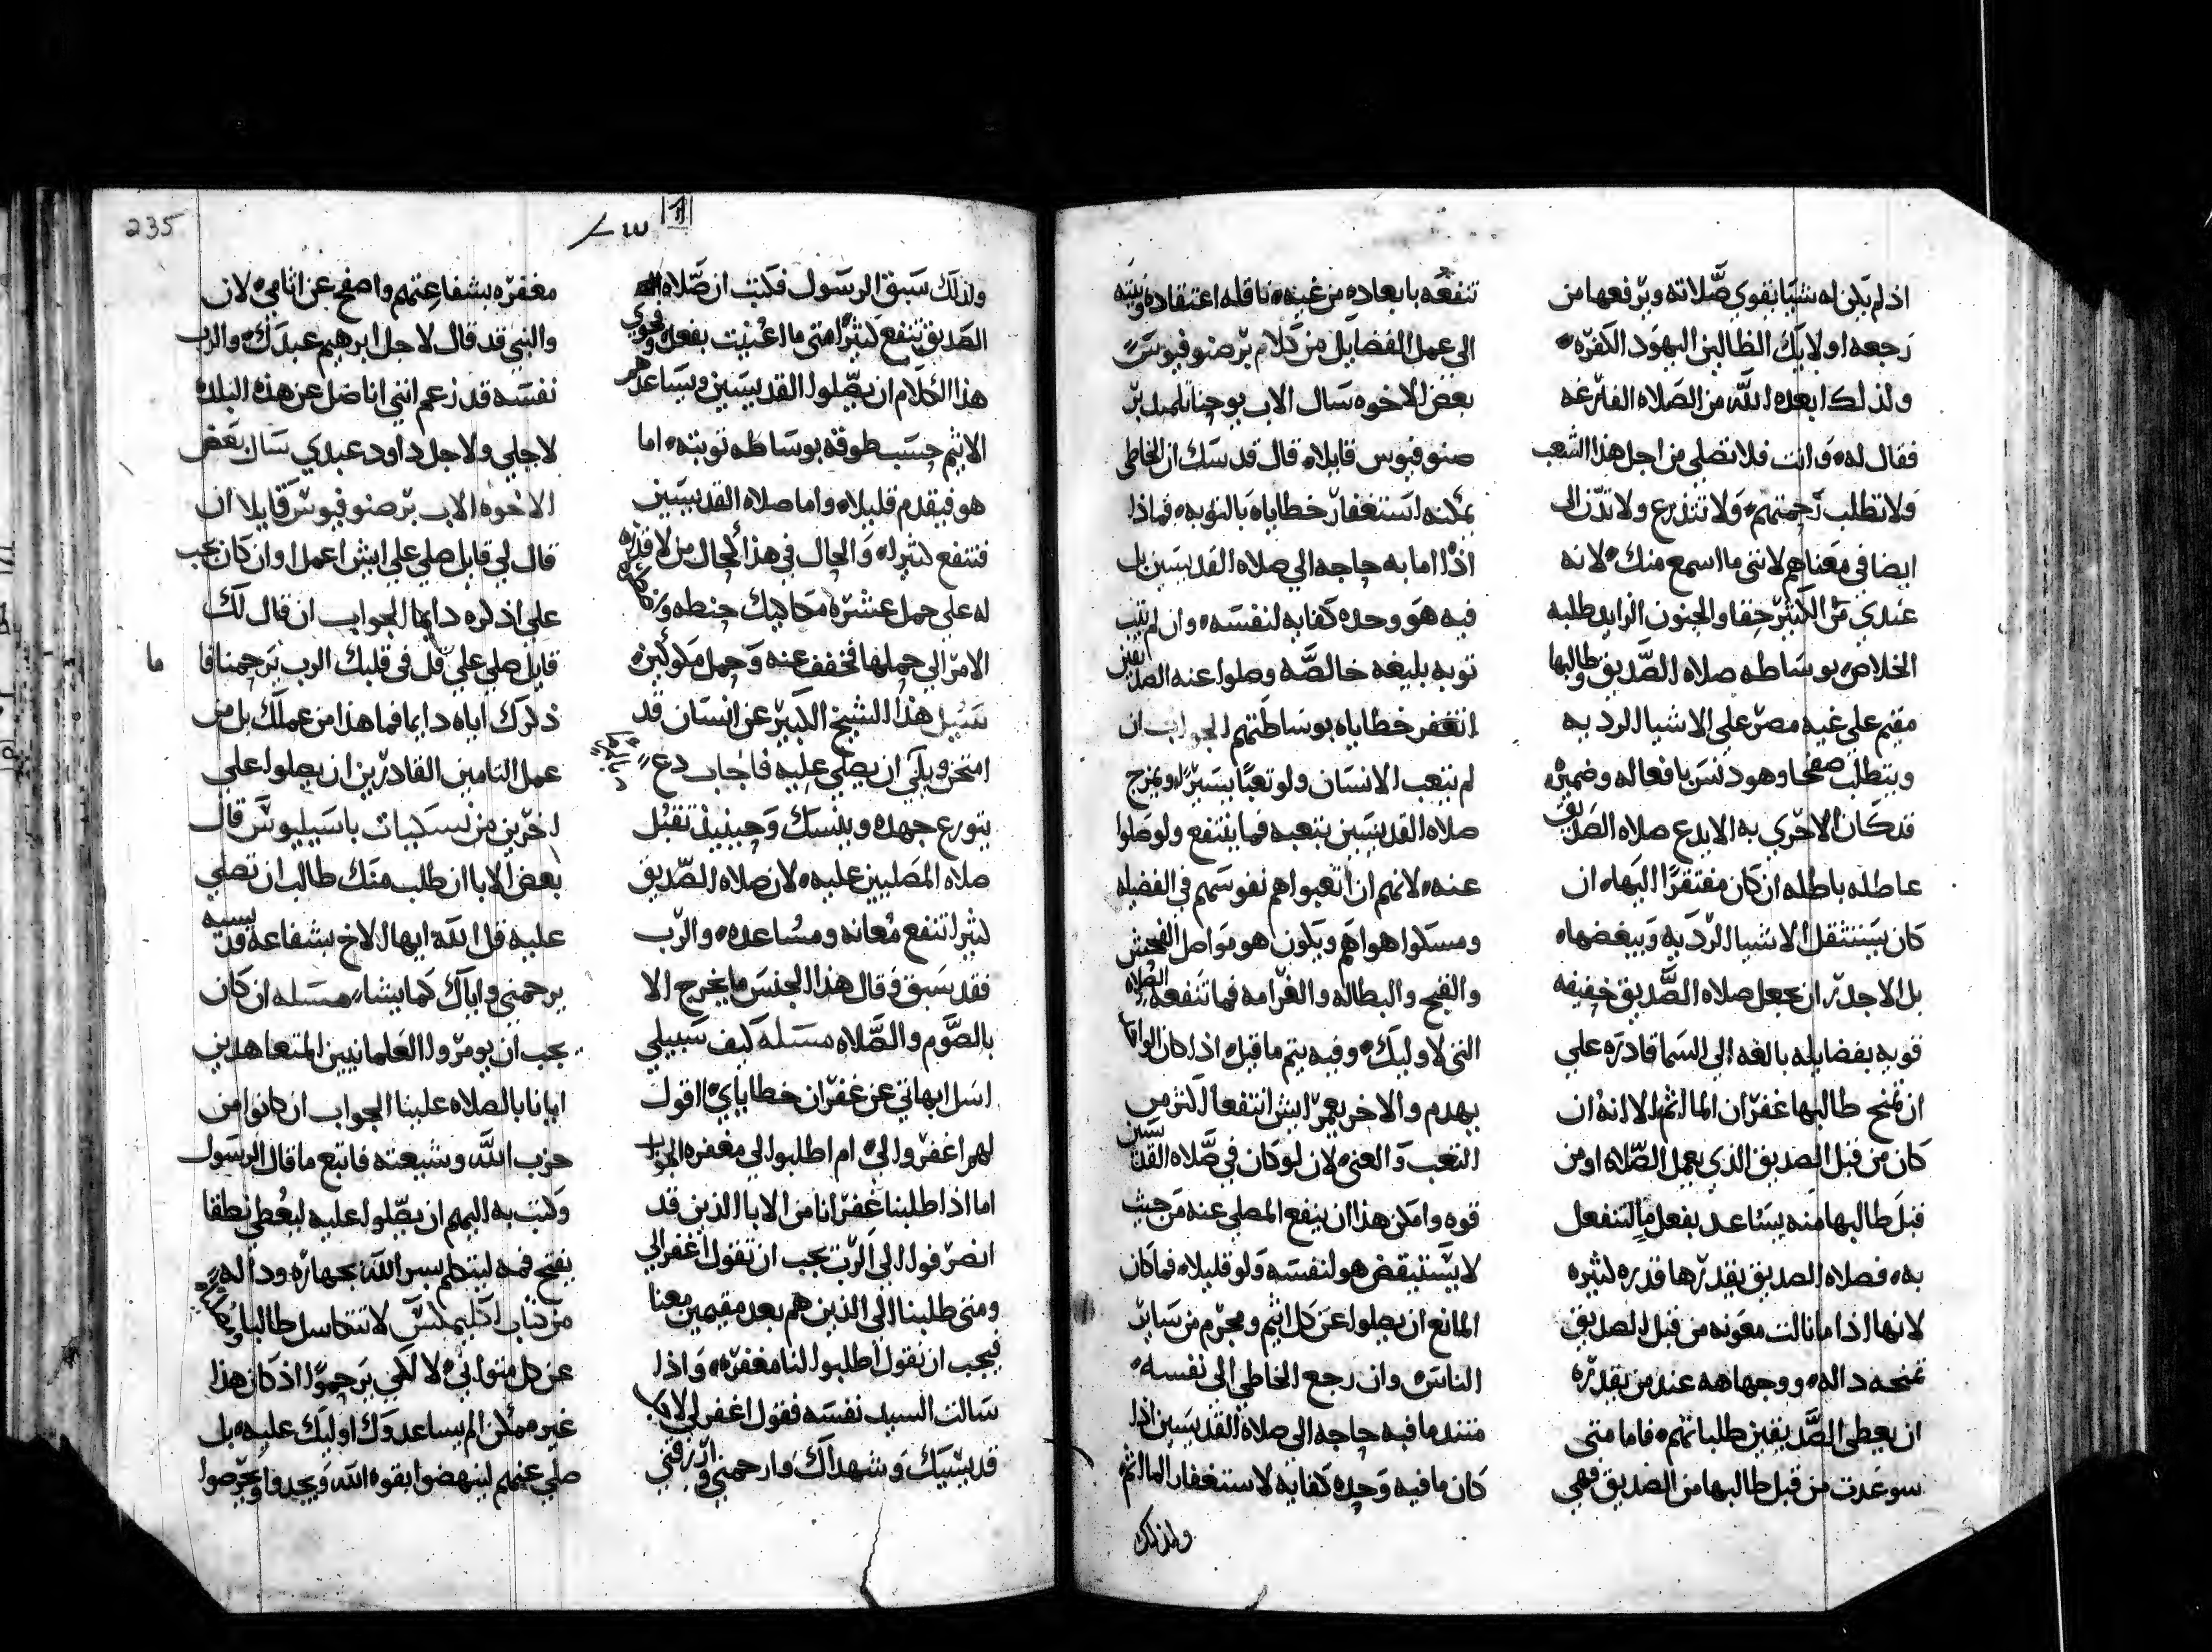 اذ لم يكن له شيا يقوي صلاته ويرفعها من
رجعه اولايك الظالمين اليهود الكفره
ولذلك ابعده الله من الصلاه الفارغه
فقال له وانت فلا تصلي من اجل هذا الشعب
ولا تطلب رحمتهم ولا تتذرع ولا تدن الي
ايضا في معناهم لانني ما اسمع منك لانه
عندي من الكثير حقا والجنون الزايد طلبه
الخلاص بوساطه صلاه الصديق وطالبها
مقيم علي غيه مصر علي الاشيا الرديه
ويتطلب صفحا وهو دنس بافعاله وضميره
قد كان الاحري به الا يدع صلاه الصديق
عاطله باطله ان كان مفتقرا اليها ان
كان يستثقل الاشيا الرديه ويبغضها
بل الاجدر ان يجعل صلاه الصديق خفيفه
قويه بفضايله بالغه الي السما قادره علي
ان تمنح طالبها غفران الماثم الا انه ان
كان من قبل الصديق الذي يعمل الصلاه او من
قبل طالبها منه يساعد بفعل ما لتنفعل
به فصلاه الصديق يقدرها قدره كثيره
لانها اذا ما نالت معونه من قبل الصديق
تمنحه داله ووجهاهه عند من يقدره
ان يعطي الصديقين طلباتهم فاما متي
سوعدت من قبل طالبها من الصديق فهي
تنفعه بابعاده من غيه ناقله اعتقاده ونيته
الي عمل الفضايل من كلام برصنوفيوس
بعض الاخوه سال الاب يوحنا تلميذ بر
صنوفيوس قايلا قال قد سك ان الخاطي
يمكنه استغفار خطاياه بالتوبه فماذا
اذا اما به حاجه الي صلاه القديسين بل
فيه هو وحده كفايه لنفسه وان لم يتب
توبه بليغه خالصه وصلوا عنه الصديقين
اتغفر خطاياه بوساطتهم الجواب ان
لم يتعب الانسان ولو تعبا يسيرا ويمزج
صلاه القديسين بتعبه فما ينتفع ولو صلوا
عنه لانهم ان اتعبوا هم نفوسهم في الفضيله
ومسكوا هواهم ويكون هو مواصل الفحش
والقبح والبطاله والغرامه فما تنفعه الصلاه
التي لاوليك وفيه يتم ما قيل اذا كان الواحد
يهدم والاخر يعمر ايش انتفعا اكثر من
التعب والعني لان لو كان في صلاه القديسين
قوه وامكن هذا ان ينفع المصلي عنه من حيث
لا يستيقض هو لنفسه ولو قليلا فما كان
المانع ان يصلوا عن كل اثيم ومجرم من ساير
الناس وان رجع الخاطي الي نفسه
متندما فبه حاجه الي صلاه القديسين اذا
كان ما فيه وحده كفايه لاستغفار الماثم
ولذلك
ولذلك سبق الرسول فكتب ان صلاه
الصديق تنفع كثيرا متي ما اعينت بفعل وفحوي
هذا الكلام ان يصلوا القديسين ويساعدهم
الاثيم حسب طوقه بوساطه توبته اما
هو فيقدم قليلا واما صلاه القديسين
فتنفع كثيرا والحال في هذا كحال من لا قدره
له علي حمل عشره مكاكيك حنطه وكان
الامر الي حملها فخفف عنه وحمل مكوكين
سيل هذا الشيخ الكبير عن انسان قد
امتحن ويكي ان يصلي عليه فاجاب دع
يتورع جهده ويتنسك وحينيذ تقبل
صلاه المصليين عليه لان صلاه الصديق
كثيرا تنفع معانه ومساعده والرب
فقد سبق وقال هذا الجنس ما يخرج الا
بالصوم والصلاه مسله كيف سبيلي
اسل ابهاتي عن غفران خطاياي اقول
لهم اغفروا لي ام اطلبوا لي مغفره الجواب
اما اذا طلبنا غفرانا من الابا الذين قد
انصرفوا الي الرب يجب ان تقول اغفر لي
ومتي طلبنا الي الذين هم بعد مقيمين معنا
فيجب ان نقول اطلبوا لنا مغفره واذا
سالت السيد نفسه فقول اغفر لي لاجل
قديسيك وشهداك وارحمني وارزقني
235
مغفره بشفاعتهم واصفح عن اثامي لان
والنبي قد قال لاجل ابرهيم عبدك والرب
نفسه قد زعم انني اناضل عن هذه البلده
لاجلي ولاجل داود عبدي سال بعض
الاخوه الاب برصنوفيوس قايلا ان
قال لي قايل صلي علي ايش اعمل وان كان يجب
علي اذكره دايما الجواب ان قال لك
قايل صلي علي قل في قلبك الرب يرحمنا فا ما
ذكرك اياه دايما فما هذا من عملك بل من
عمل التامين القادرين ان يصلوا علي
اخرين من نسكيات باسيليوس قال
بعض الابا ان طلب منك طالب ان تصلي
عليه قل الله ايها الاخ بشفاعه قديسيه
يرحمني واياك كما يشا مسله ان كان
يجب ان يومروا العلمانيين المتعاهدين
ايانا بالصلاه علينا الجواب ان كانوا من
حزب الله وشيعته فاتبع ما قال الرسول
وكتب به اليهم ان يصلوا عليه ليعطي نطقا
بفتح فمه ليتكلم بسر الله بجهاره وداله
من كتاب اكليمكس لا تتكاسل طالبا
عن كل متواني لا لكي يرحموا اذ كان هذا
غير ممكن الم يساعدوك اوليك عليه بل
صلي عنهم لينهضوا بقوه الله ويجدوا ويحرصوا